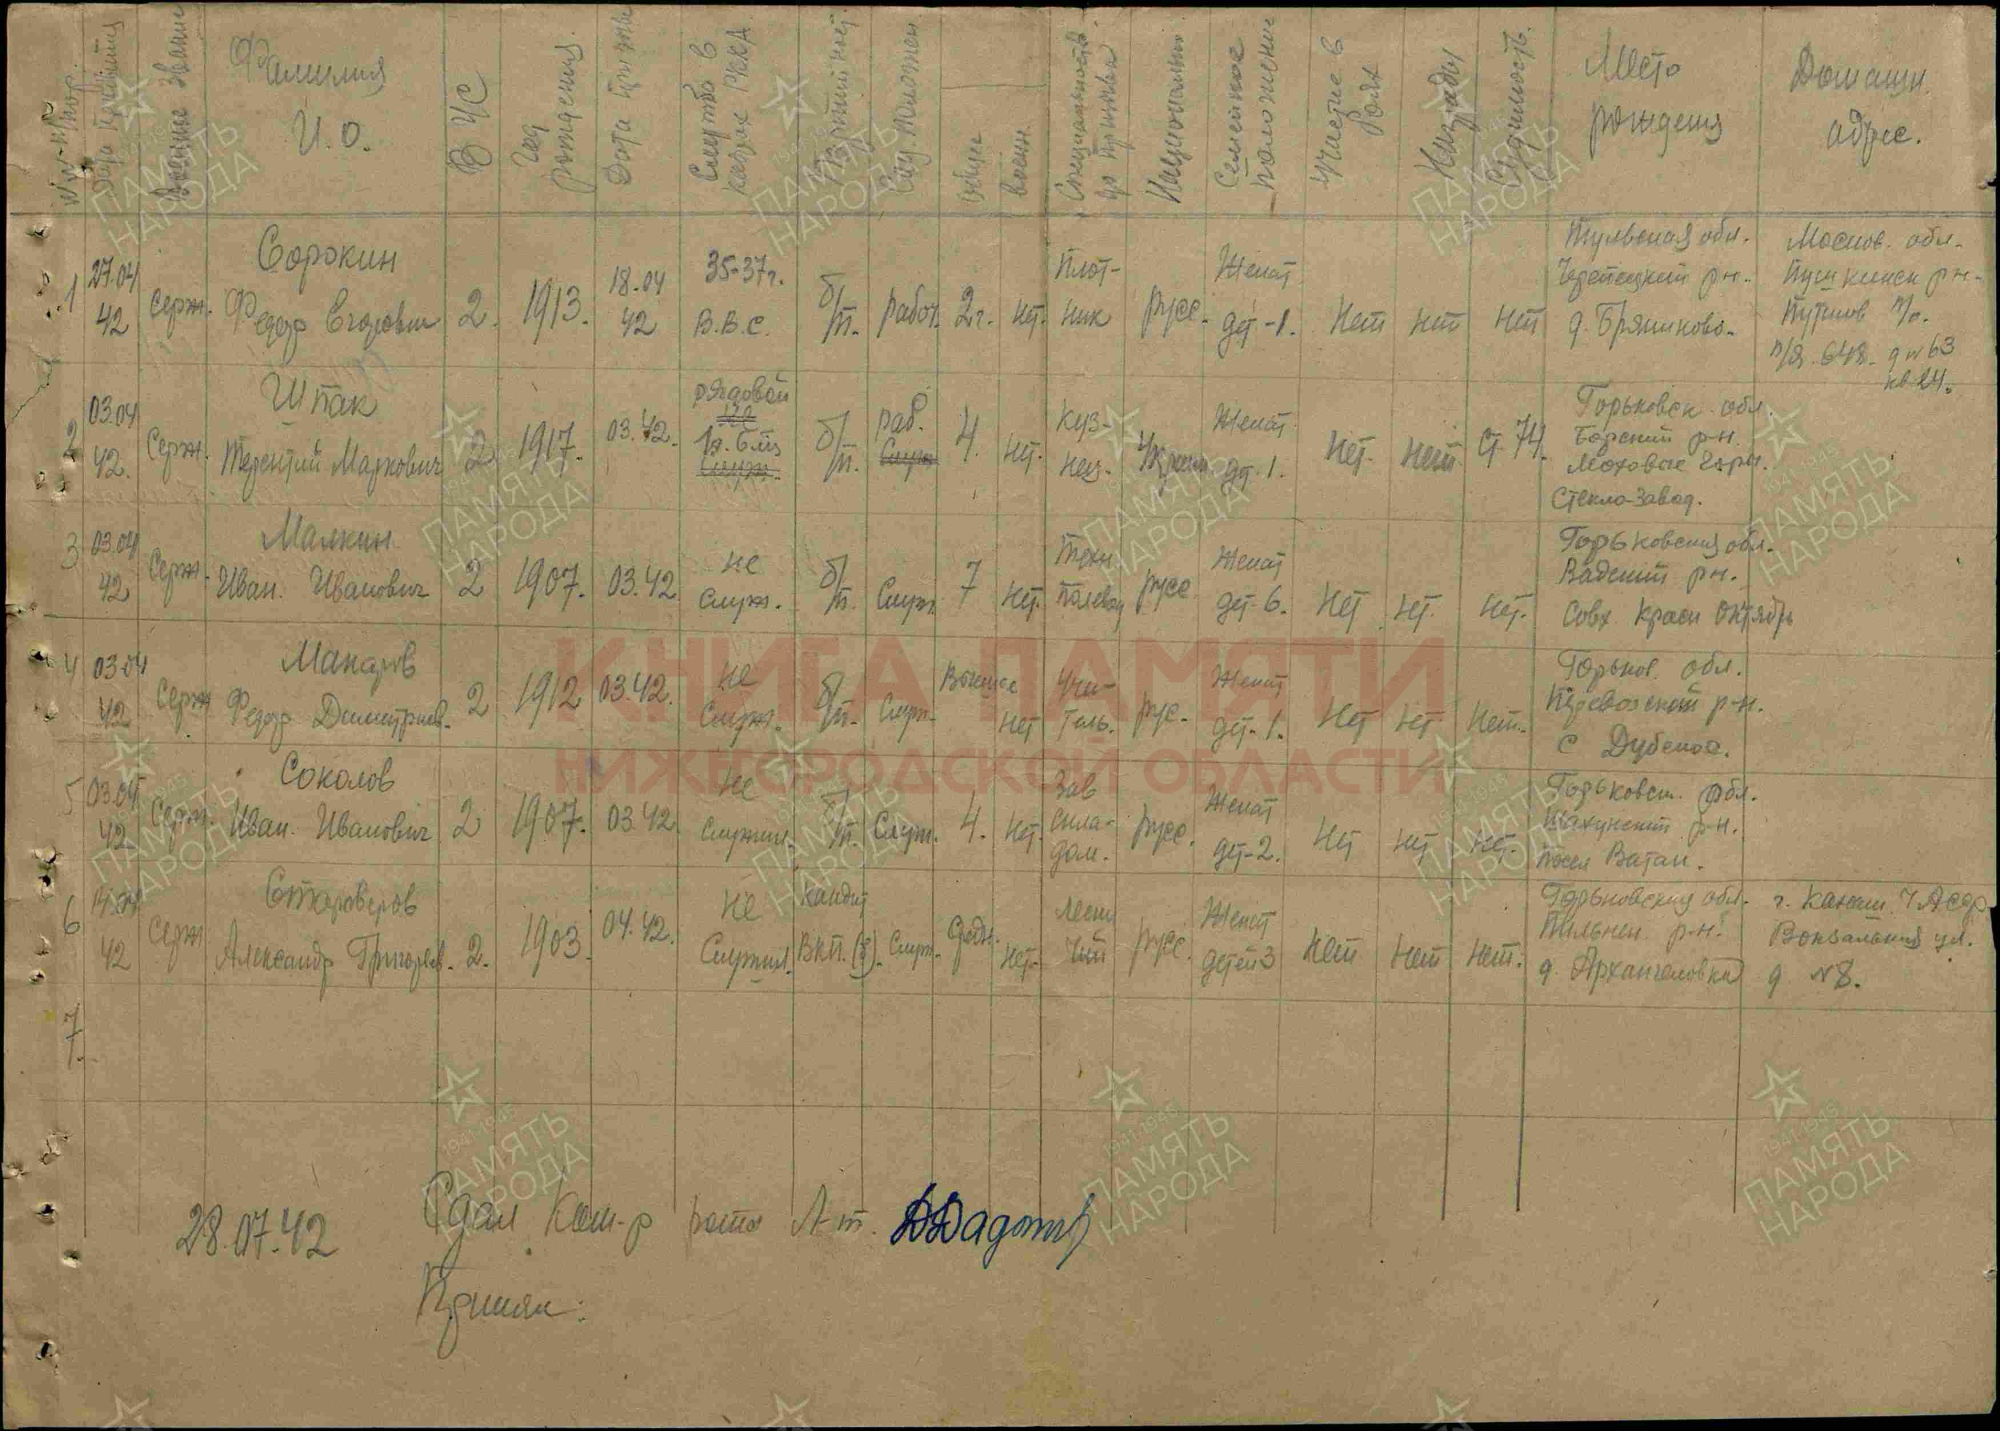 Военные Звания
Фамилия
И. О.
В УС
Год рождения
Партийность
Соц. положен.
общее
военн
Специальность до призыва
Национальн
Семейное положение
Участие в боях
Награды
Судимость
Место рождения
Домашн. адрес.
1
27.04 42
Серж.
Сорокин
Федор Егорович
2.
1913.
18.04 42
35-37г.
В.В.С.
б/п.
работ.
2г.
нет.
Плотник
русс.
Женат
дет-1.
Нет
нет
нет
Тульская обл.
Черепецкий р-н.
д. Бряниково.
Москов. обл.
Пушкинск р-н-
п/о.
п/я. 648. д n 63
кв 24.
2
03.04 42.
Серж.
Шпак
Терентий Маркович
2
1917.
03.42.
рядовой
б/п.
раб.
Служ
4.
нет.
Кузнец.
Украин
Женат
дет. 1.
Нет.
Нет
Ст. 74.
Горьковск. обл.
Борский р-н.
Моховые Горы.
Стекло-завод.
3
03.04 42
Серж.
Малкин
Иван. Иванович
2
1907.
03.42
не служ.
б/п.
Служ
7
нет.
Техн полевод
русс
Женат
дет. 6.
Нет
нет.
нет.
Горьковская обл.
Вадский р-н.
Совх Красн Октябрь
4
03.04 42
Серж
Макаров
Федор Димитриев.
2
1912
03.42.
не служ.
б/п.
Служ.
Высшее
нет
Учитель.
рус.
Женат
дет-1.
Нет
нет
Нет.
Горьков. обл.
Перевозский р-н.
с Дубское.
5
03.04 42
Серж.
Соколов
Иван. Иванович
2
1907.
03.42
не служил.
б/п.
Служ.
4.
нет.
Зав складом.
русс.
Женат
дет-2.
Нет
нет
нет.
Горьковск. обл.
Шахунский р-н.
посел Ватан.
6
42
Серж
Староверов
Александр Григорьев.
2.
1903
04.42.
не служил.
кандит ВКП.(б).
Служ.
Средн.
нет.
Лесничий
русс.
Женат
детей 3
Нет
Нет
Нет.
Горьковская обл.
Пильнен. р-н.
д. Архангеловка
г. Канаш. ЧАССР
Вокзальная ул.
д. N 8.
7.
28.07.42
Сдал Ком-р роты Л-т.
Принял:
КНИГА ПАМЯТИ
НИЖЕГОРОДСКОЙ ОБЛАСТИ
ПАМЯТЬ НАРОДА
1941-1945